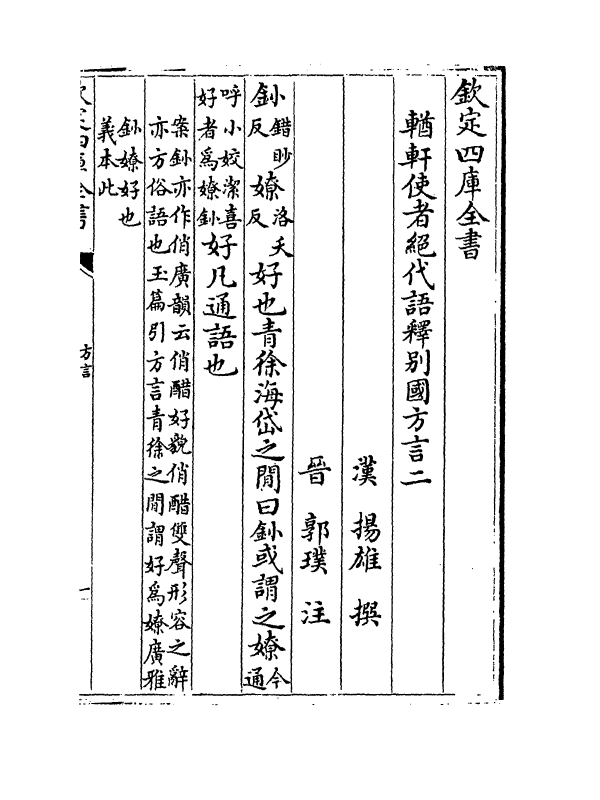 欽定四庫全書
輶軒使者絕代語釋別國方言二
漢 揚雄 撰
晉 郭璞 注
釥錯眇反嫽洛夭反好也青徐海岱之閒曰釥或謂之嫽今通
呼小姣潔喜好者爲嫽釥好凡通語也
案釥亦作俏廣韻云俏醋好貌俏醋雙聲形容之辭
亦方俗語也玉篇引方言青徐之閒謂好爲嫽廣雅
釥嫽好也
義本此
方言
一